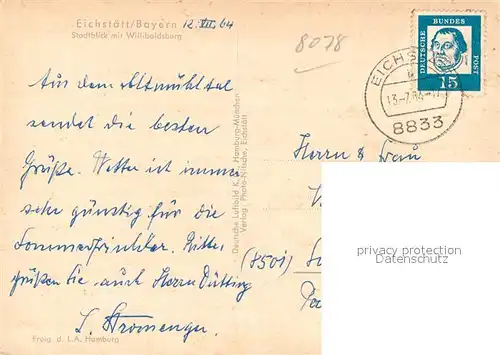 Eichstätt/Bayern 12. VII. 64
Stadtblick mit Willibaldsburg
8078
DEUTSCHE BUNDES POST
15
EICHST
13.-7.64
8833
Aus dem Altmühltal
sendet die besten
Grüße. Wetter ist immer
sehr günstig für die
Sommerfrischler. Bitte
grüßen Sie auch Herrn Dütting
Deutsche Luftbild K.G., Hamburg-München
Verlag: Photo-Nitsche, Eichstätt
Herrn & Frau
(8501)
privacy protection
Datenschutz
Freig. d. L.A. Hamburg